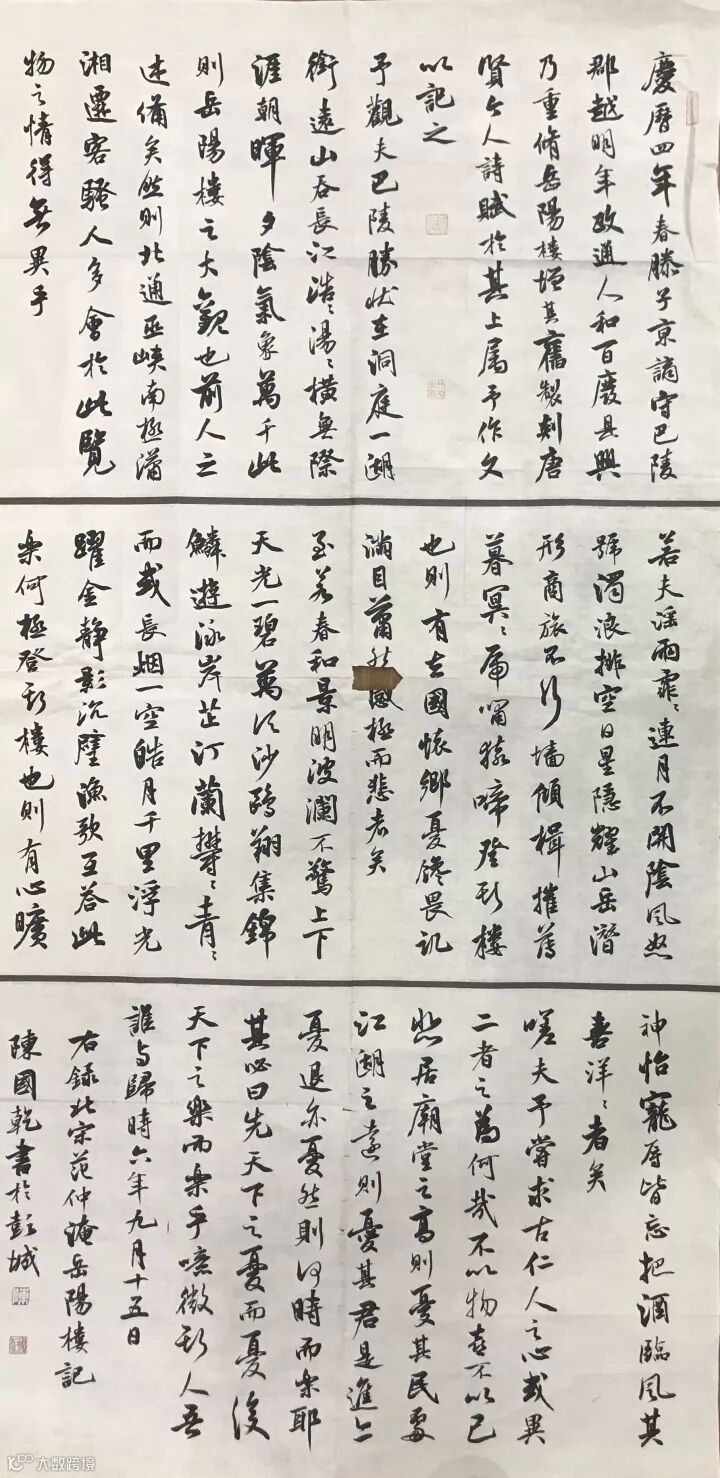 慶曆四年春滕子京謫守巴陵
郡越明年政通人和百廢具興
乃重脩岳陽樓增其舊製刻唐
賢今人詩賦於其上屬予作文
以記之
予觀夫巴陵勝狀在洞庭一湖
銜遠山吞長江浩〻湯〻橫無際
涯朝暉夕陰氣象萬千此
則岳陽樓之大觀也前人之
述備矣然則北通巫峽南極瀟
湘遷客騷人多會於此覽
物之情得無異乎
若夫淫雨霏〻連月不開陰風怒
號濁浪排空日星隱耀山岳潛
形商旅不行墻傾楫摧薄
暮冥〻虎嘯猿啼登斯樓
也則有去國懷鄉憂讒畏譏
滿目蕭然感極而悲者矣
至若春和景明波瀾不驚上下
天光一碧萬頃沙鷗翔集錦
鱗遊泳岸芷汀蘭鬱〻青〻
而或長烟一空皓月千里浮光
躍金靜影沉璧漁歌互答此
樂何極登斯樓也則有心曠
神怡寵辱皆忘把酒臨風其
喜洋〻者矣
嗟夫予嘗求古仁人之心或異
二者之為何哉不以物喜不以己
悲居廟堂之高則憂其民處
江湖之遠則憂其君是進亦
憂退亦憂然則何時而樂耶
其必曰先天下之憂而憂後
天下之樂而樂乎噫微斯人吾
誰與歸時六年九月十五日
右錄北宋范仲淹岳陽樓記
陳國乾書於彭城
大数跨境